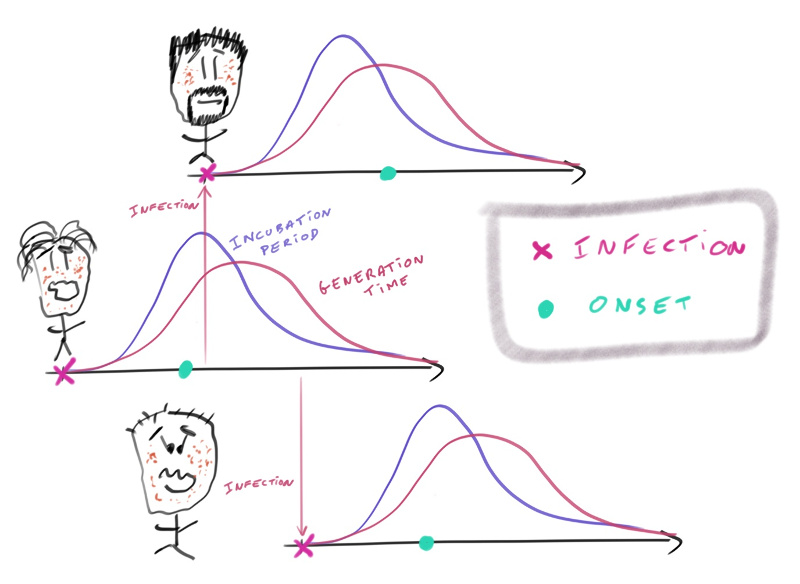 INFECTION
INCUBATION
PERIOD
GENERATION
TIME
INFECTION
INFECTiON
ONSET